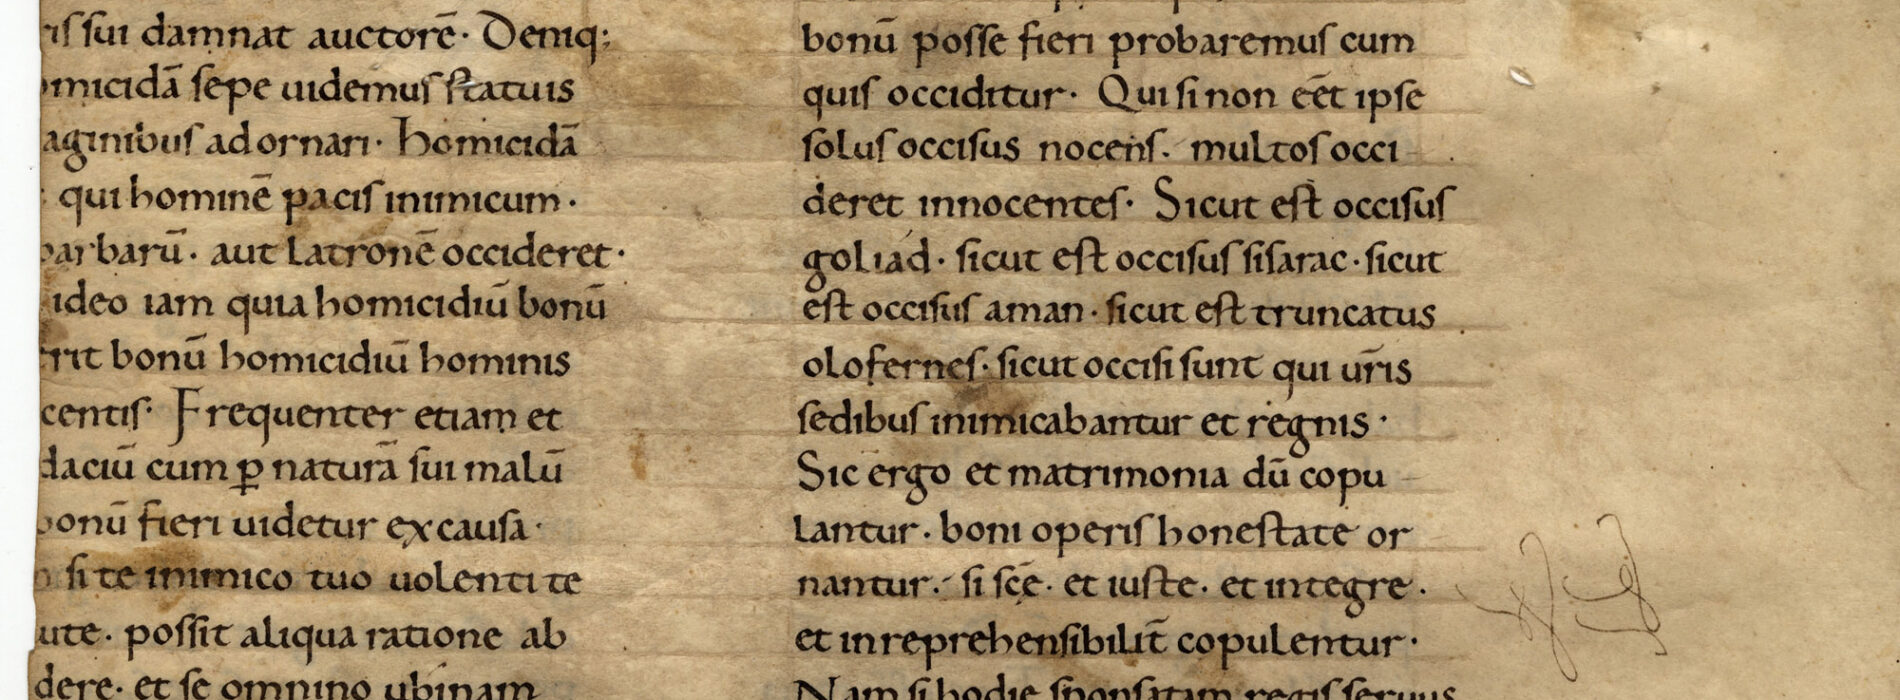 sui damnat auctorē· Deniq;
micidā sepe uidemus statuis
aginibus adornari· homicidā
qui hominē pacis inimicum·
barbarū· aut latronē occideret·
ideo iam quia homicidiū bonū
rit bonū homicidiū hominis
centis· Frequenter etiam et
daciū cum ꝑ naturā sui malū
bonū fieri uidetur ex causa·
si te inimico tuo uolenti te
ute· possit aliqua ratione ab
dere· et se omnino ubinam
bonū posse fieri probaremus cum
quis occiditur· Qui si non eēt ipse
solus occisus nocens· multos occi
deret innocentes· Sicut est occisus
goliad· sicut est occisus sisarac· sicut
est occisus aman· sicut est truncatus
olofernes· sicut occisi sunt qui ur̄is
sedibus inimicabantur et regnis·
Sic ergo et matrimonia dū copu
lantur· boni operis honestate or
nantur· si sc̄ę· et iuste· et integre·
et inreprehensibilit̄ copulentur·
Nam si hodie sponsatam regis seruus